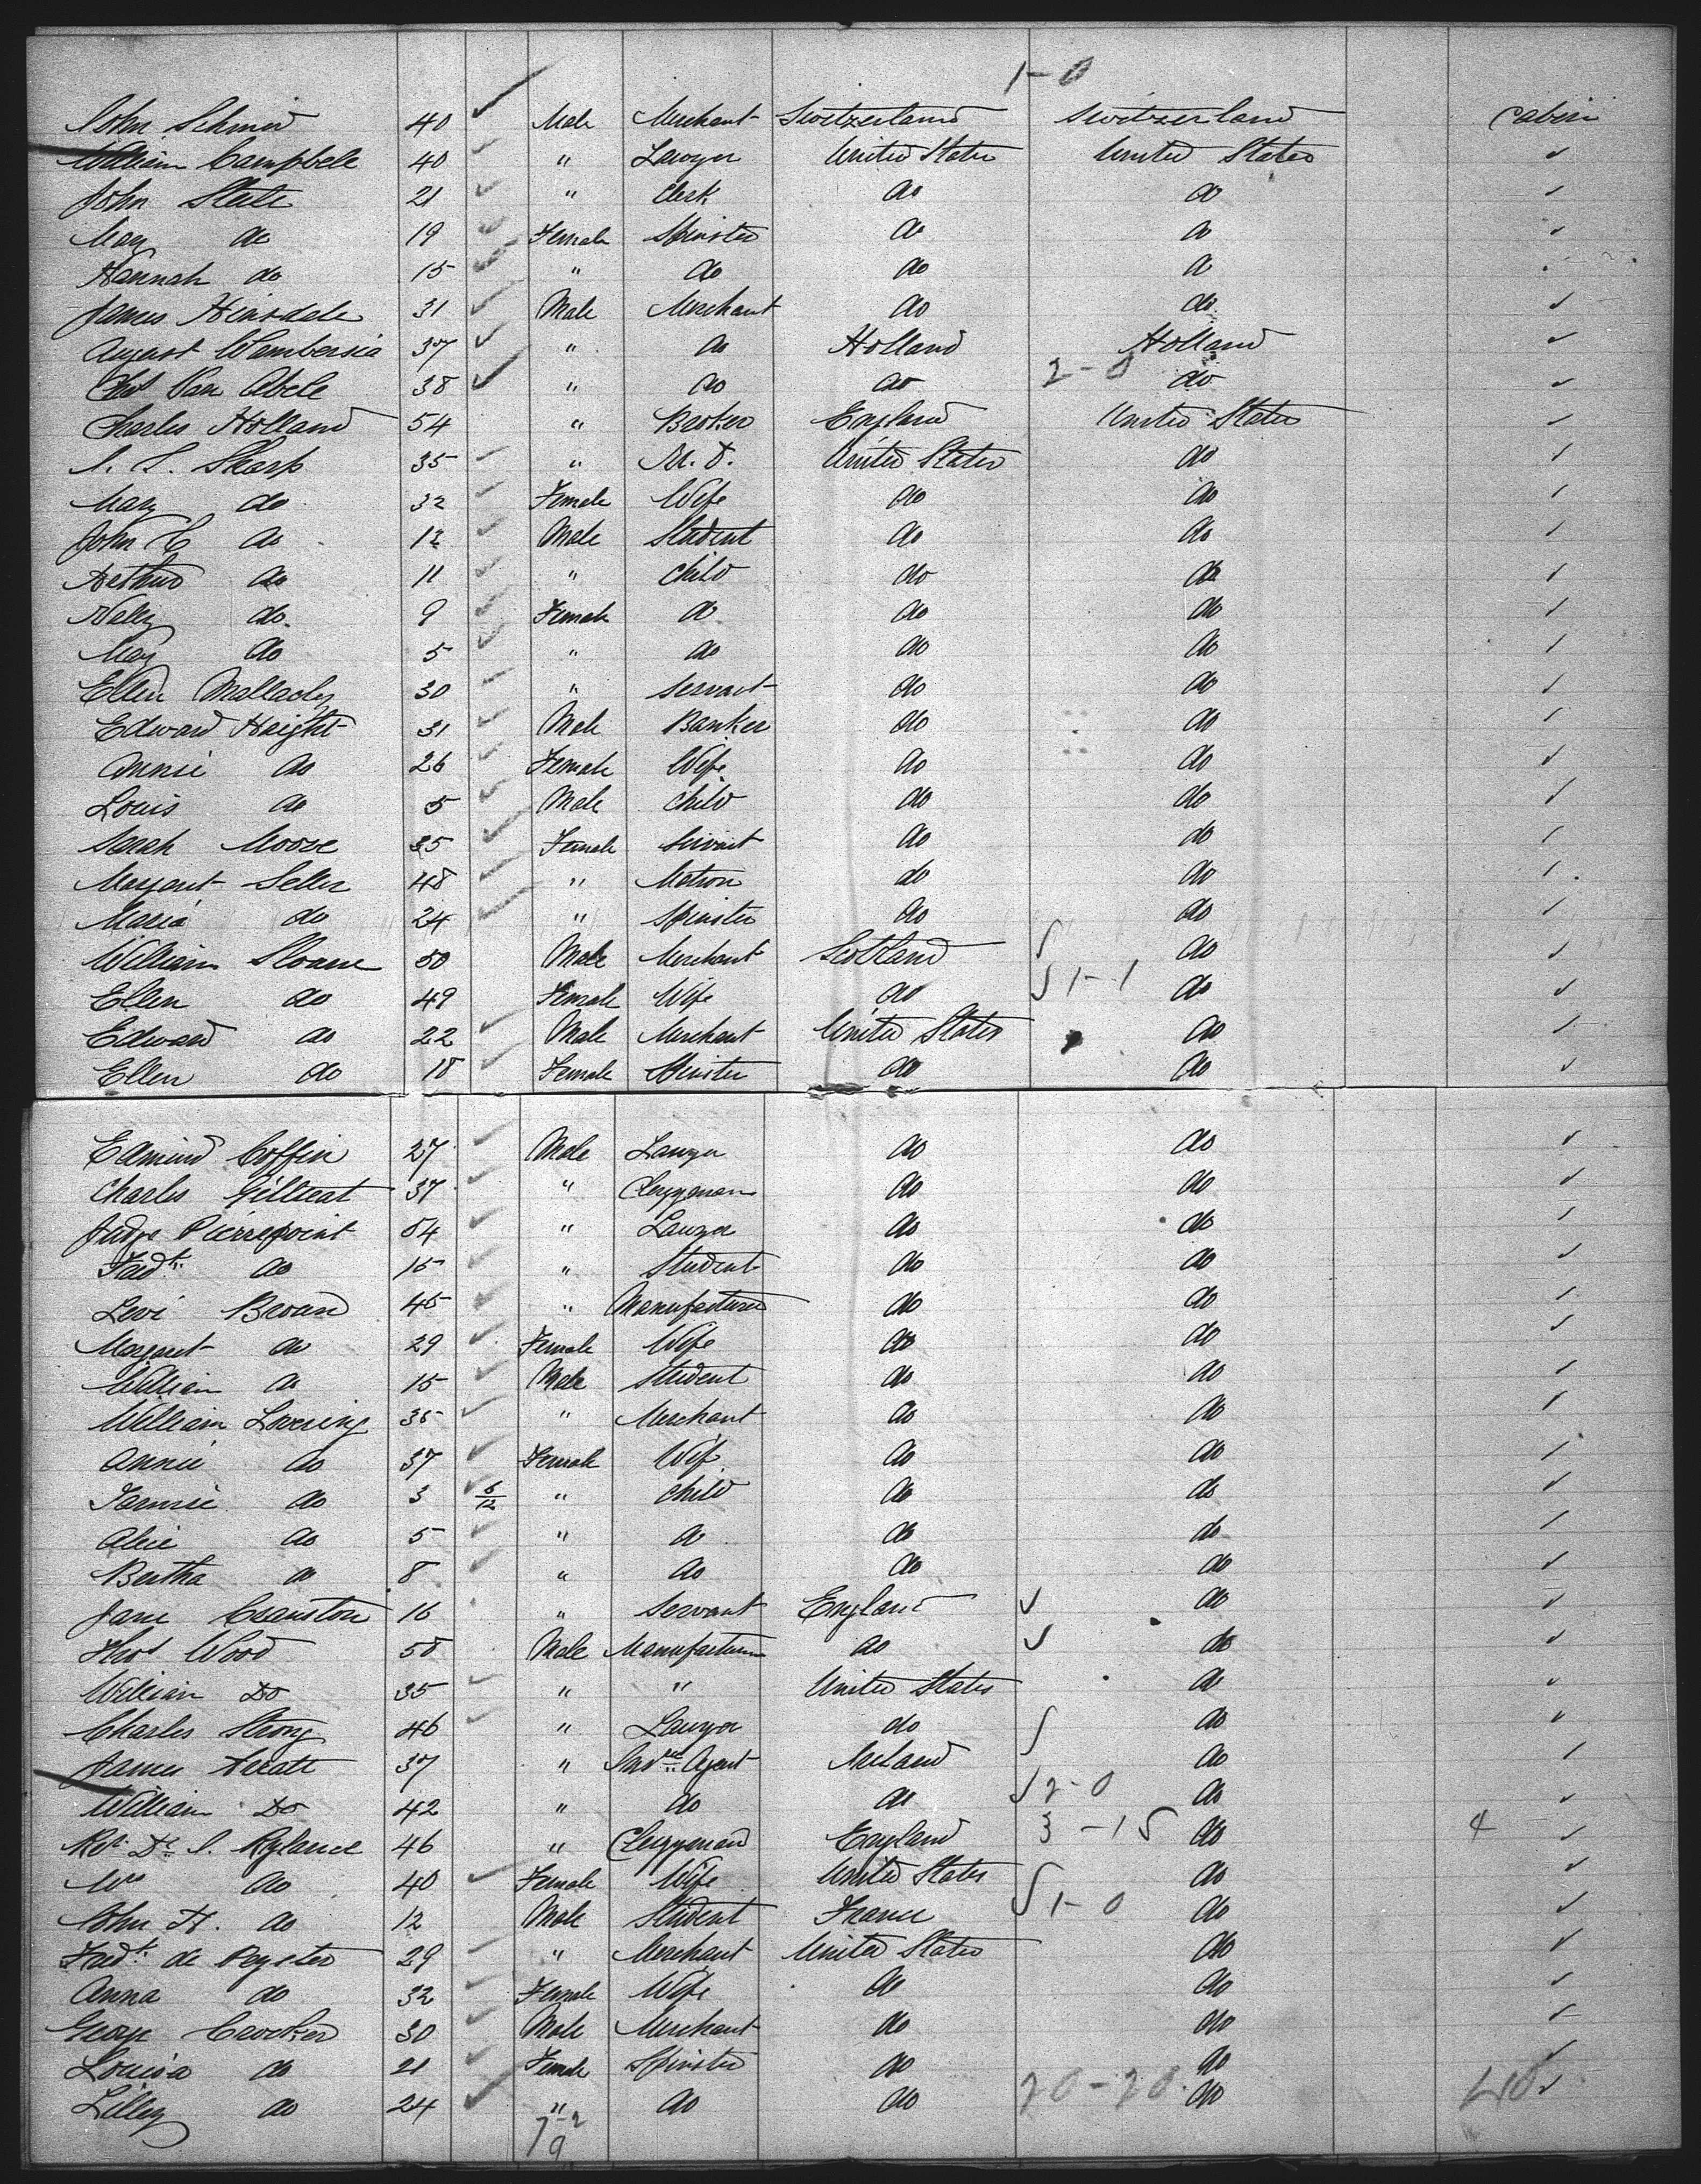 1-0
John Schmid 40 Male Merchant Switzerland Switzerland Cabin
William Campbell 40 " Lawyer United States United States
John State 21 " Clerk do do
May do 19 Female Spinster do do
Hannah do 15 " do do do
James Hinsdale 31 Male Merchant do do
August Wambersia 37 " do Holland Holland
Thos Van Abele 38 " do do 2-0 do
Charles Holland 54 " Broker England United States
S. Sharp 35 " M.D. United States do
Mary do 32 Female Wife do do
John do 12 Male Student do do
Arthur do 11 " Child do do
Nelly do 9 Female do do do
May do 5 " do do do
Ellen Mallady 30 " Servant do do
Edward Haight 31 Male Banker do do
Annie do 26 Female Wife do do
Louis do 5 Male Child do do
Sarah Moore 35 Female Servant do do
Margaret Seller 48 " Matron do do
Maria do 24 " Spinster do do
William Sloane 50 Male Merchant Scotland do
Ellen do 49 Female Wife do 1-1 do
Edward do 22 Male Merchant United States do
Ellen do 18 Female Spinster do do
Edmund Coffin 27 Male Lawyer do do
Charles Gilliat 37 " Clergyman do do
Judge Pierrepoint 54 " Lawyer do do
Fredk do 15 " Student do do
Levi Brown 45 " Manufacturer do do
Margaret do 29 Female Wife do do
William do 15 Male Student do do
William Lovering 35 " Merchant do do
Annie do 37 Female Wife do do
Fannie do 3 6/12 " Child do do
Alice do 5 " do do do
Bertha do 8 " do do do
Jane Cranston 16 " Servant England do
Thos Wood 58 Male Manufacturer do do
William Do 35 " " United States do
Charles Strong 46 " Lawyer do do
James 37 " Agent Ireland do
William Do 42 " do do 2-0 do
Rev Dr. J. Rylance 46 " Clergyman England 3-15 do 4
Mrs do 40 Female Wife United States do
John H. do 12 Male Student France 1-0 do
Fredk de Peyster 29 " Merchant United States do
Anna do 32 Female Wife do do
George Crocker 30 Male Merchant do do
Louisa do 21 Female Spinster do do
Lilley do 24 " do do 20-20 do 40
7-2
9